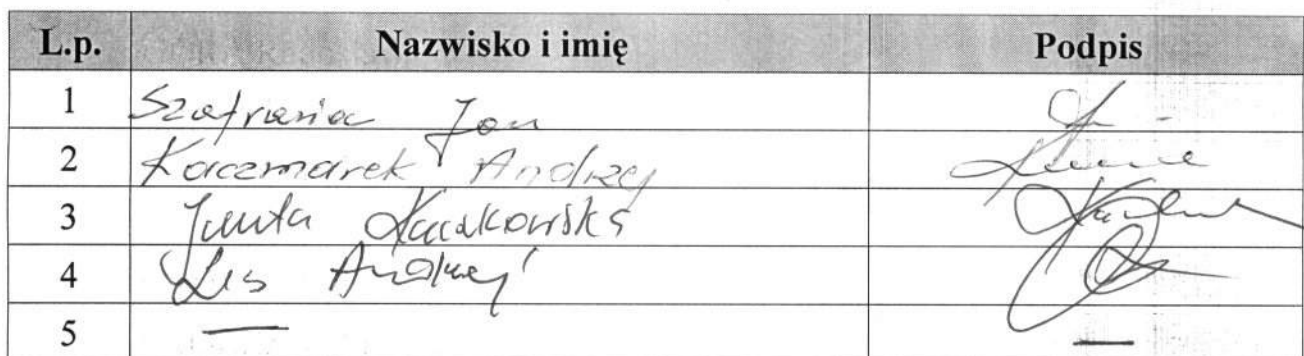 L.p. Nazwisko i imię Podpis
1 Szafrania Jan
2 Kaczmarek Andrzej
3 Kaczkowska
4 Lis Andrzej
5 — —